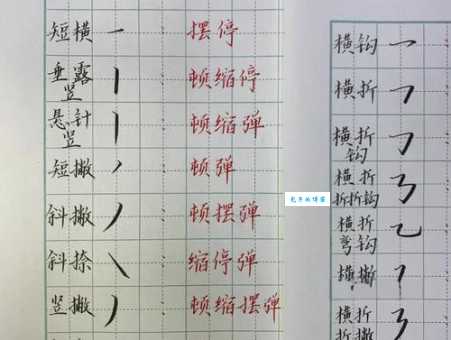 短横 摆停
垂露竖 顿缩停
悬针竖 顿缩弹
短撇 顿弹
斜撇 顿摆弹
斜捺 缩停弹
竖撇 顿缩摆弹
横钩
横折
横折钩
横折折折钩
横折弯钩
横撇
横折折撇